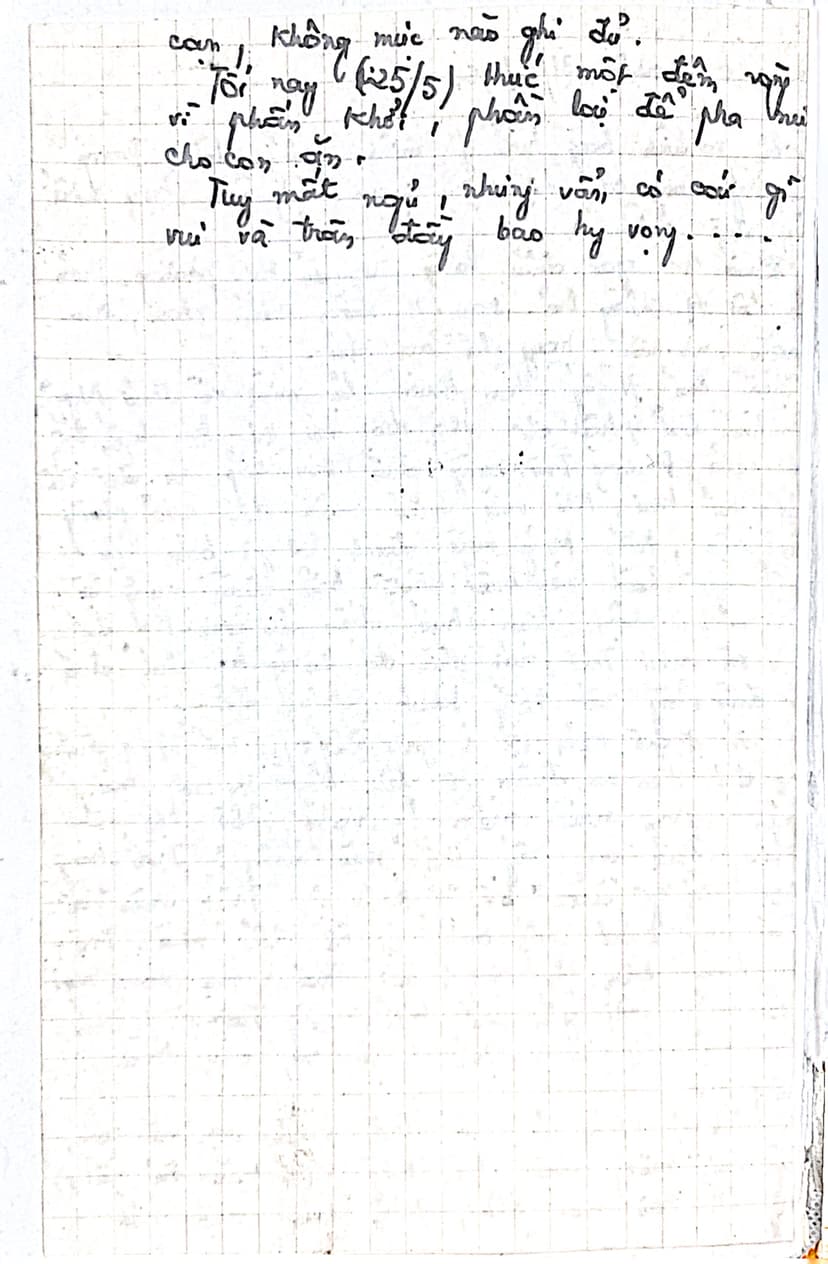 cạn, không mực nào ghi đủ.
Tối nay (25/5) thức một đêm ngủ
vì phấn khởi, phần lo để pha
cho con ăn.
Tuy mất ngủ, nhưng vẫn có cái gì
vui và tràn đầy bao hy vọng....